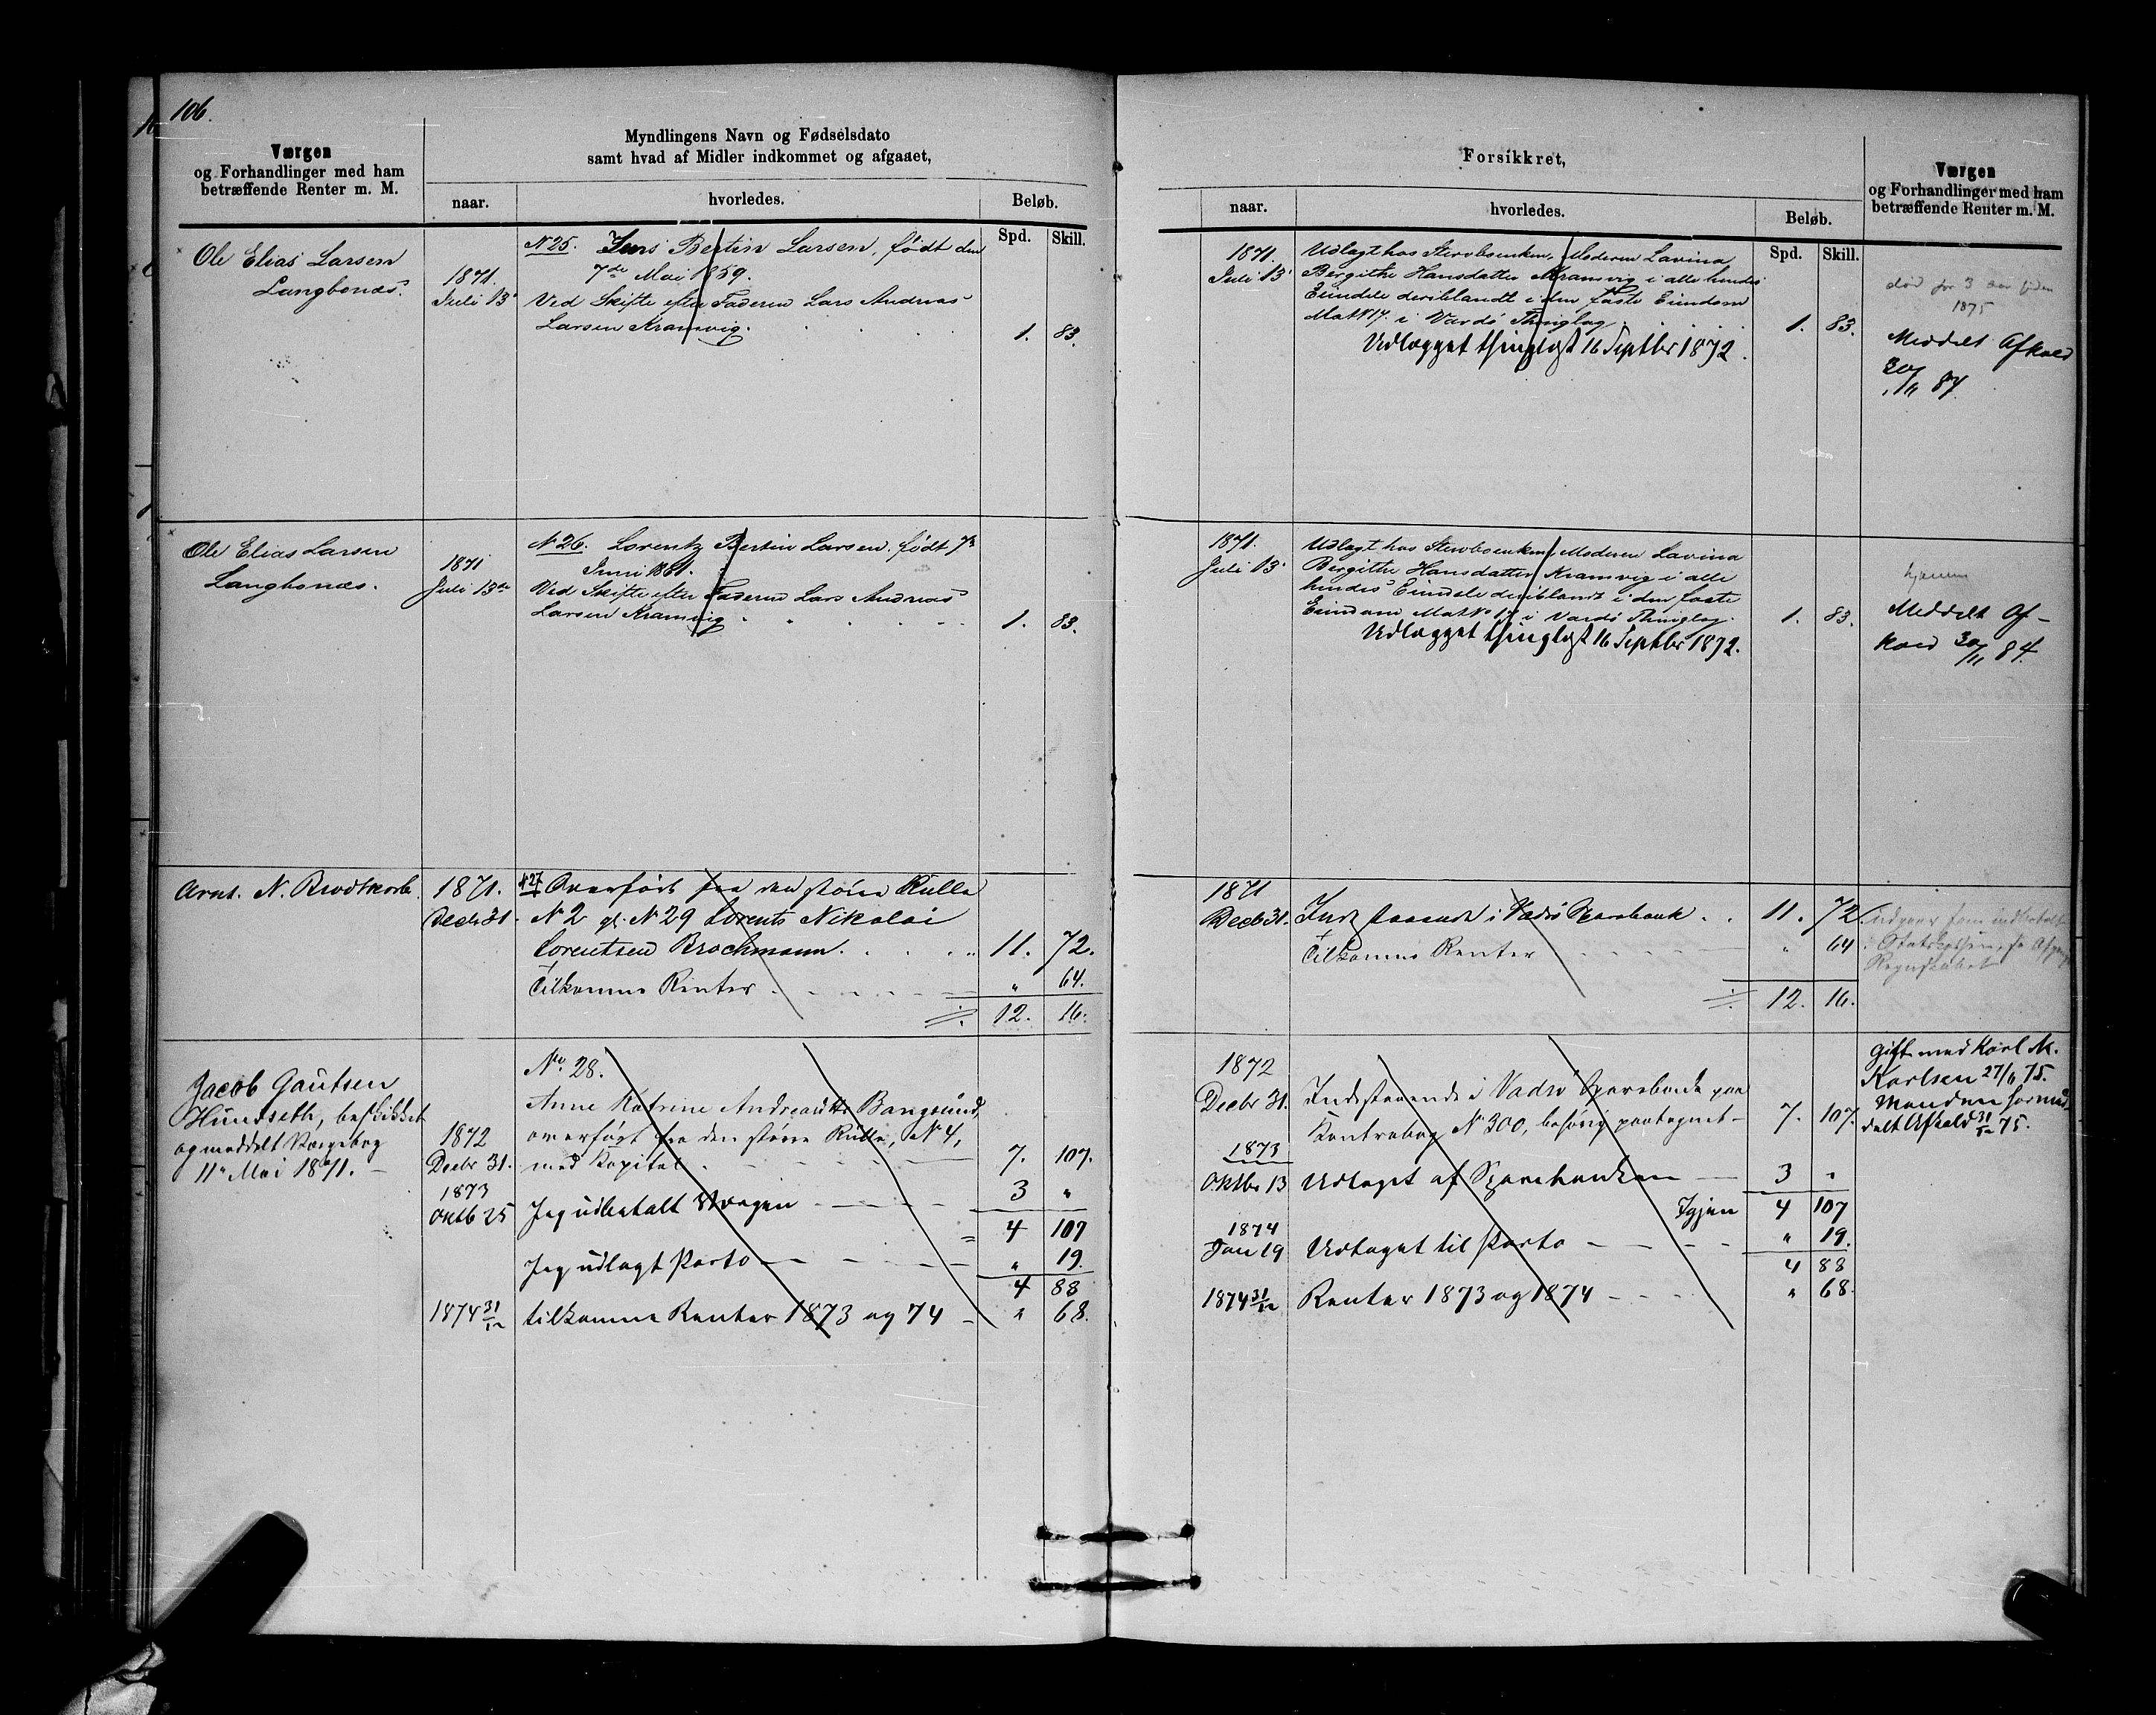 106.
Værgen
og Forhandlinger med ham
betræffende Renter m. M.
Myndlingens Navn og Fødselsdato
samt hvad af Midler indkommet og afgaaet,
naar.
hvorledes.
Beløb.
Spd. Skill.
Ole Elias Larsen
Langbonæs.
1871.
Juli 13
N 25. Jens Bertin Larsen, født den
7de Mai 1859.
Ved Skifte efter Faderen Lars Andreas
Larsen Kramvig.
1. 83.
Ole Elias Larsen
Langbonæs.
1871
Juli 13de
N 26. Lorentz Bertin Larsen, født 7de
Juni 1861.
Ved Skifte efter Faderen Lars Andreas
Larsen Kramvig
1. 83.
Arnt. N. Brodtkorb.
1871.
Decbr 31.
N 27 Overført fra den større Rulle
N 2 gl. N 29 Lorents Nikolai
Lorentsen Brochmann. 11. 72.
Tilkomne Renter " 64.
12. 16.
Jacob Gautsen
Hundseth, beskikket
og meddelt Værgebog
11te Mai 1871.
No. 28.
Anne Katrine Andreasdtr Bangsund,
1872
Decbr 31.
overført fra den større Rulle, N 4,
med Kapital 7. 107.
1873
Oktb 25
Jeg udbetalt Værgen 3 "
4 107
Jeg udlagt Porto " 19.
4 88
1874 31/12 tilkomne Renter 1873 og 74 " 68.
Forsikkret,
Værgen
og Forhandlinger med ham
betræffende Renter m. M.
naar.
hvorledes.
Beløb.
Spd. Skill.
1871.
Juli 13
Udlagt hos Stervboenken, Moderen Lavina
Bergithe Hansdatter Kramvig i alle hendes
Eiendele deriblandt i den faste Eiendom
Mat N 17. i Vardø Thinglag. 1. 83.
Udlægget thinglæst 16 Septbr 1872.
død for 3 aar siden
1875
Meddelt Afkald
20/11 84.
1871.
Juli 13
Udlagt hos Stervboenken, Moderen Lavina
Bergithe Hansdatter Kramvig i alle
hendes Eiendele deriblandt i den faste
Eiendom Mat No 17 i Vardø Thinglag. 1. 83.
Udlægget thinglæst 16 Septbr 1872.
hjemme
Meddelt Af-
kald 30/11 84.
1871
Decb 31.
Indestaaende i Vadsø Sparebank 11. 72.
Tilkomne Renter " 64
12. 16.
Udgaaer som indbetalt
i Statskassen, se Afgangs
Regnskabet
1872
Decbr 31.
Indestaaende i Vadsø Sparebank paa
Kontrabog N 300, behørig paategnet 7. 107.
1873
Oktbr 13 Udtaget af Sparebanken 3 "
Igjen 4 107
1874
Jan 19 Udtaget til Porto " 19.
4 88
1874 31/12 Renter 1873 og 1874 " 68.
Gift med Karl M.
Karlsen 27/6 75.
Manden har med-
delt Afkald 31/12 75.